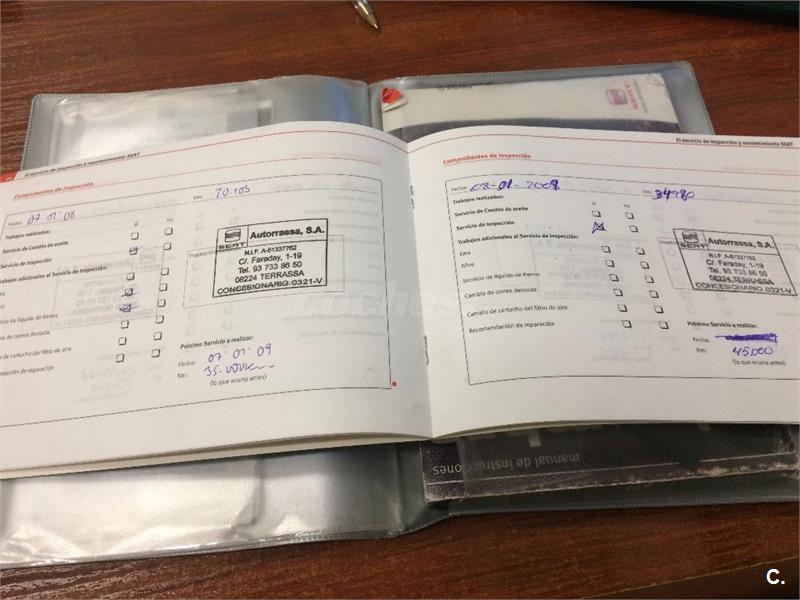 El servicio de inspección y mantenimiento SEAT
Comprobantes de inspección
Fecha: 07 01 08
Km: 20.103
Trabajos realizados:
sí no
Servicio de Cambio de aceite
Servicio de Inspección
Trabajos adicionales al Servicio de Inspección:
Servicio de líquido de frenos
de correa dentada
de cartucho del filtro de aire
de reparación
SEAT
Autorrassa, S.A.
N.I.F. A-61337762
C/. Faraday, 1-19
Tel. 93 733 86 50
08224 TERRASSA
CONCESIONARIO 0321-V
Próximo Servicio a realizar:
Fecha: 07 01 09
Km:
(lo que ocurra antes)
El servicio de inspección y mantenimiento SEAT
Comprobantes de inspección
Fecha: 08-01-2009
Km: 34980
Trabajos realizados:
sí no
Servicio de Cambio de aceite
Servicio de Inspección
Trabajos adicionales al Servicio de Inspección:
Kms
Años
Servicio de líquido de frenos
Cambio de correa dentada
Cambio de cartucho del filtro de aire
Recomendación de reparación
SEAT
Autorrassa, S.A.
N.I.F. A-61337762
C/. Faraday, 1-19
Tel. 93 733 86 50
08224 TERRASSA
CONCESIONARIO 0321-V
Próximo Servicio a realizar:
Fecha:
Km: 45.000
(lo que ocurra antes)
SEAT
manual de instrucciones
coches
C.